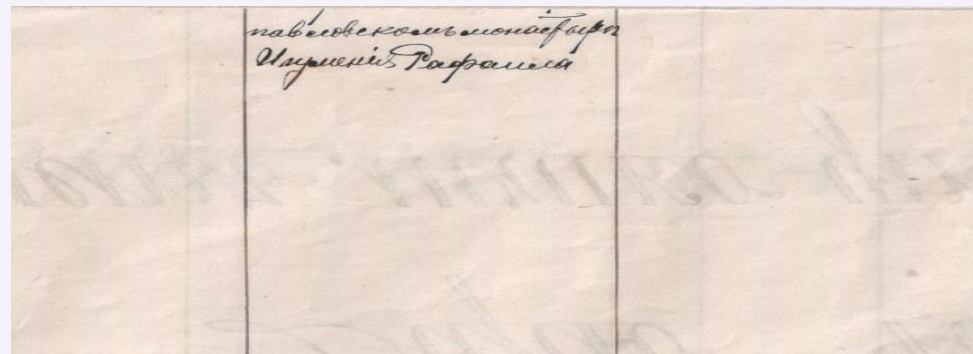 павловскомъ монастырѣ
Игуменія Рафаила